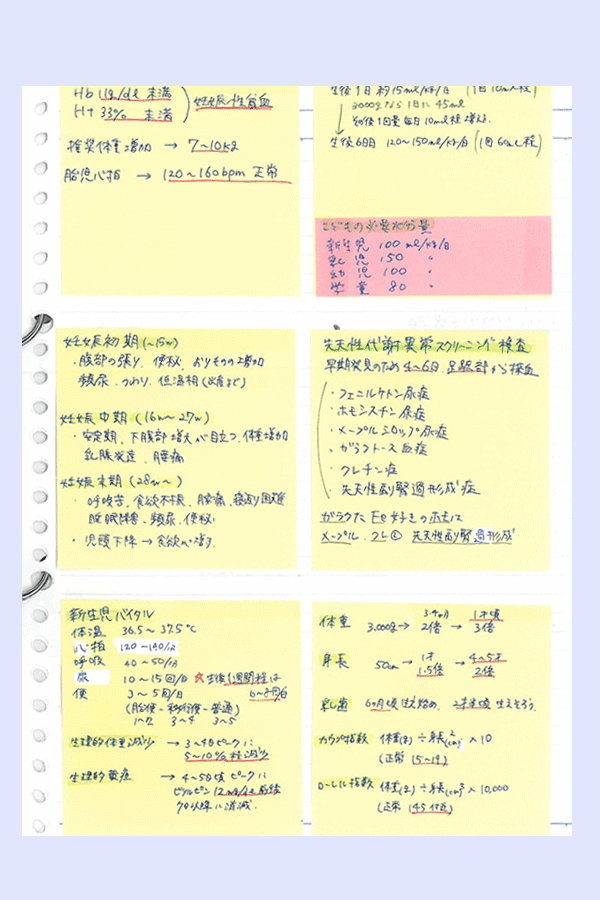 Hb 11g/dl 未満
Ht 33% 未満
妊娠性貧血
推奨体重増加 → 7〜10kg
胎児心拍 → 120〜160bpm 正常
生後1日 約15ml/kg/日 (1回10ml程)
3000gなら1日に45ml
その後1回量毎日10ml程増える。
生後6日目 120〜150ml/kg/日 (1回60ml程)
こどもの必要水分量
新生児 100 ml/kg/日
乳児 150 〃
幼児 100 〃
学童 80 〃
妊娠初期(〜15w)
・腹部の張り、便秘、おりものの増加
頻尿、つわり、低温相
妊娠中期(16w〜27w)
・安定期、下腹部増大が目立つ、体重増加
乳腺発達、腰痛
妊娠末期(28w〜)
・呼吸苦、食欲不振、腰痛、寝返り困難
睡眠障害、頻尿、便秘
・児頭下降→食欲が
先天性代謝異常スクリーニング検査
早期発見のため4〜6日、足踵部から採血
・フェニルケトン尿症
・ホモシスチン尿症
・メープルシロップ尿症
・ガラクトース血症
・クレチン症
・先天性副腎過形成症
ガラクた Fe好きのホモに
メープル、クレ 先天性副腎過形成
新生児バイタル
体温 36.5〜37.5℃
心拍 120〜140/分
呼吸 40〜50/分
尿 10〜15回/日 ☆生後1週間程は
便 3〜5回/日 6〜8回/日
(胎便-移行便-普通)
1〜2 3〜4 3〜5
生理的体重減少 → 3〜4日ピークに
5〜10%程減少
生理的黄疸 → 4〜5日頃ピークに
ビリルビン12mg/dl前後
7日以降に消滅.
体重 3,000g → 3-4ヶ月 2倍 → 1才頃 3倍
身長 50cm → 1才 1.5倍 → 4〜5才 2倍
乳歯 6ヶ月頃生え始め、2才半頃生えそろう.
カウプ指数 体重(g)÷身長²(cm)×10
(正常 15〜19)
ローレル指数 体重(g)÷身長³(cm)×10,000
(正常 145付近)